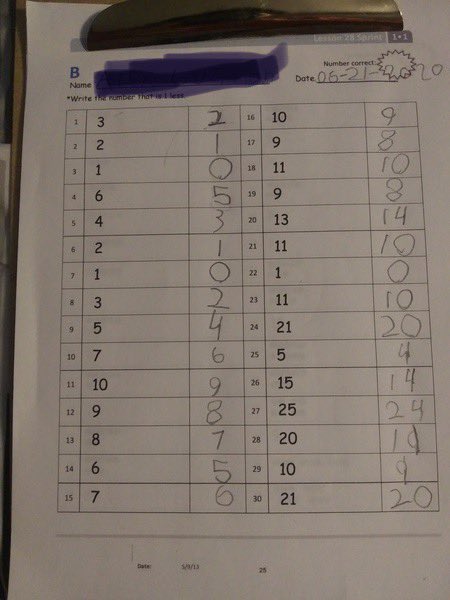 Lesson 28 Sprint 1•1
B
Number correct:
Name
Date 06-21-2020
*Write the number that is 1 less.
1 3 2
2 2 1
3 1 0
4 6 5
5 4 3
6 2 1
7 1 0
8 3 2
9 5 4
10 7 6
11 10 9
12 9 8
13 8 7
14 6 5
15 7 6
16 10 9
17 9 8
18 11 10
19 9 8
20 13 14
21 11 10
22 1 0
23 11 10
24 21 20
25 5 4
26 15 14
27 25 24
28 20 19
29 10 9
30 21 20
Date: 5/9/13 25